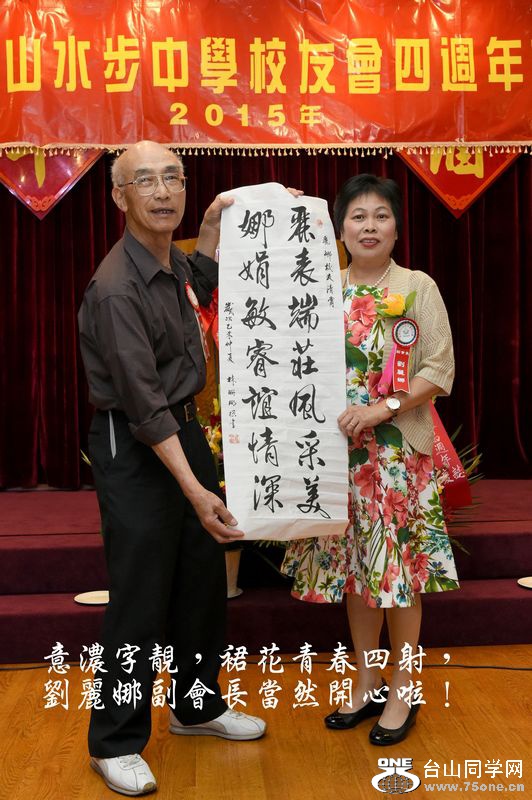 山水步中學校友會四週年
2015年
麗娜校友清賞
麗表端莊風采美
娜娟敏睿誼情深
歲次乙未仲夏
劉麗娜
意濃字靚，裙花青春四射，
劉麗娜副會長當然開心啦！
ONE
台山同学网
www.75one.cn